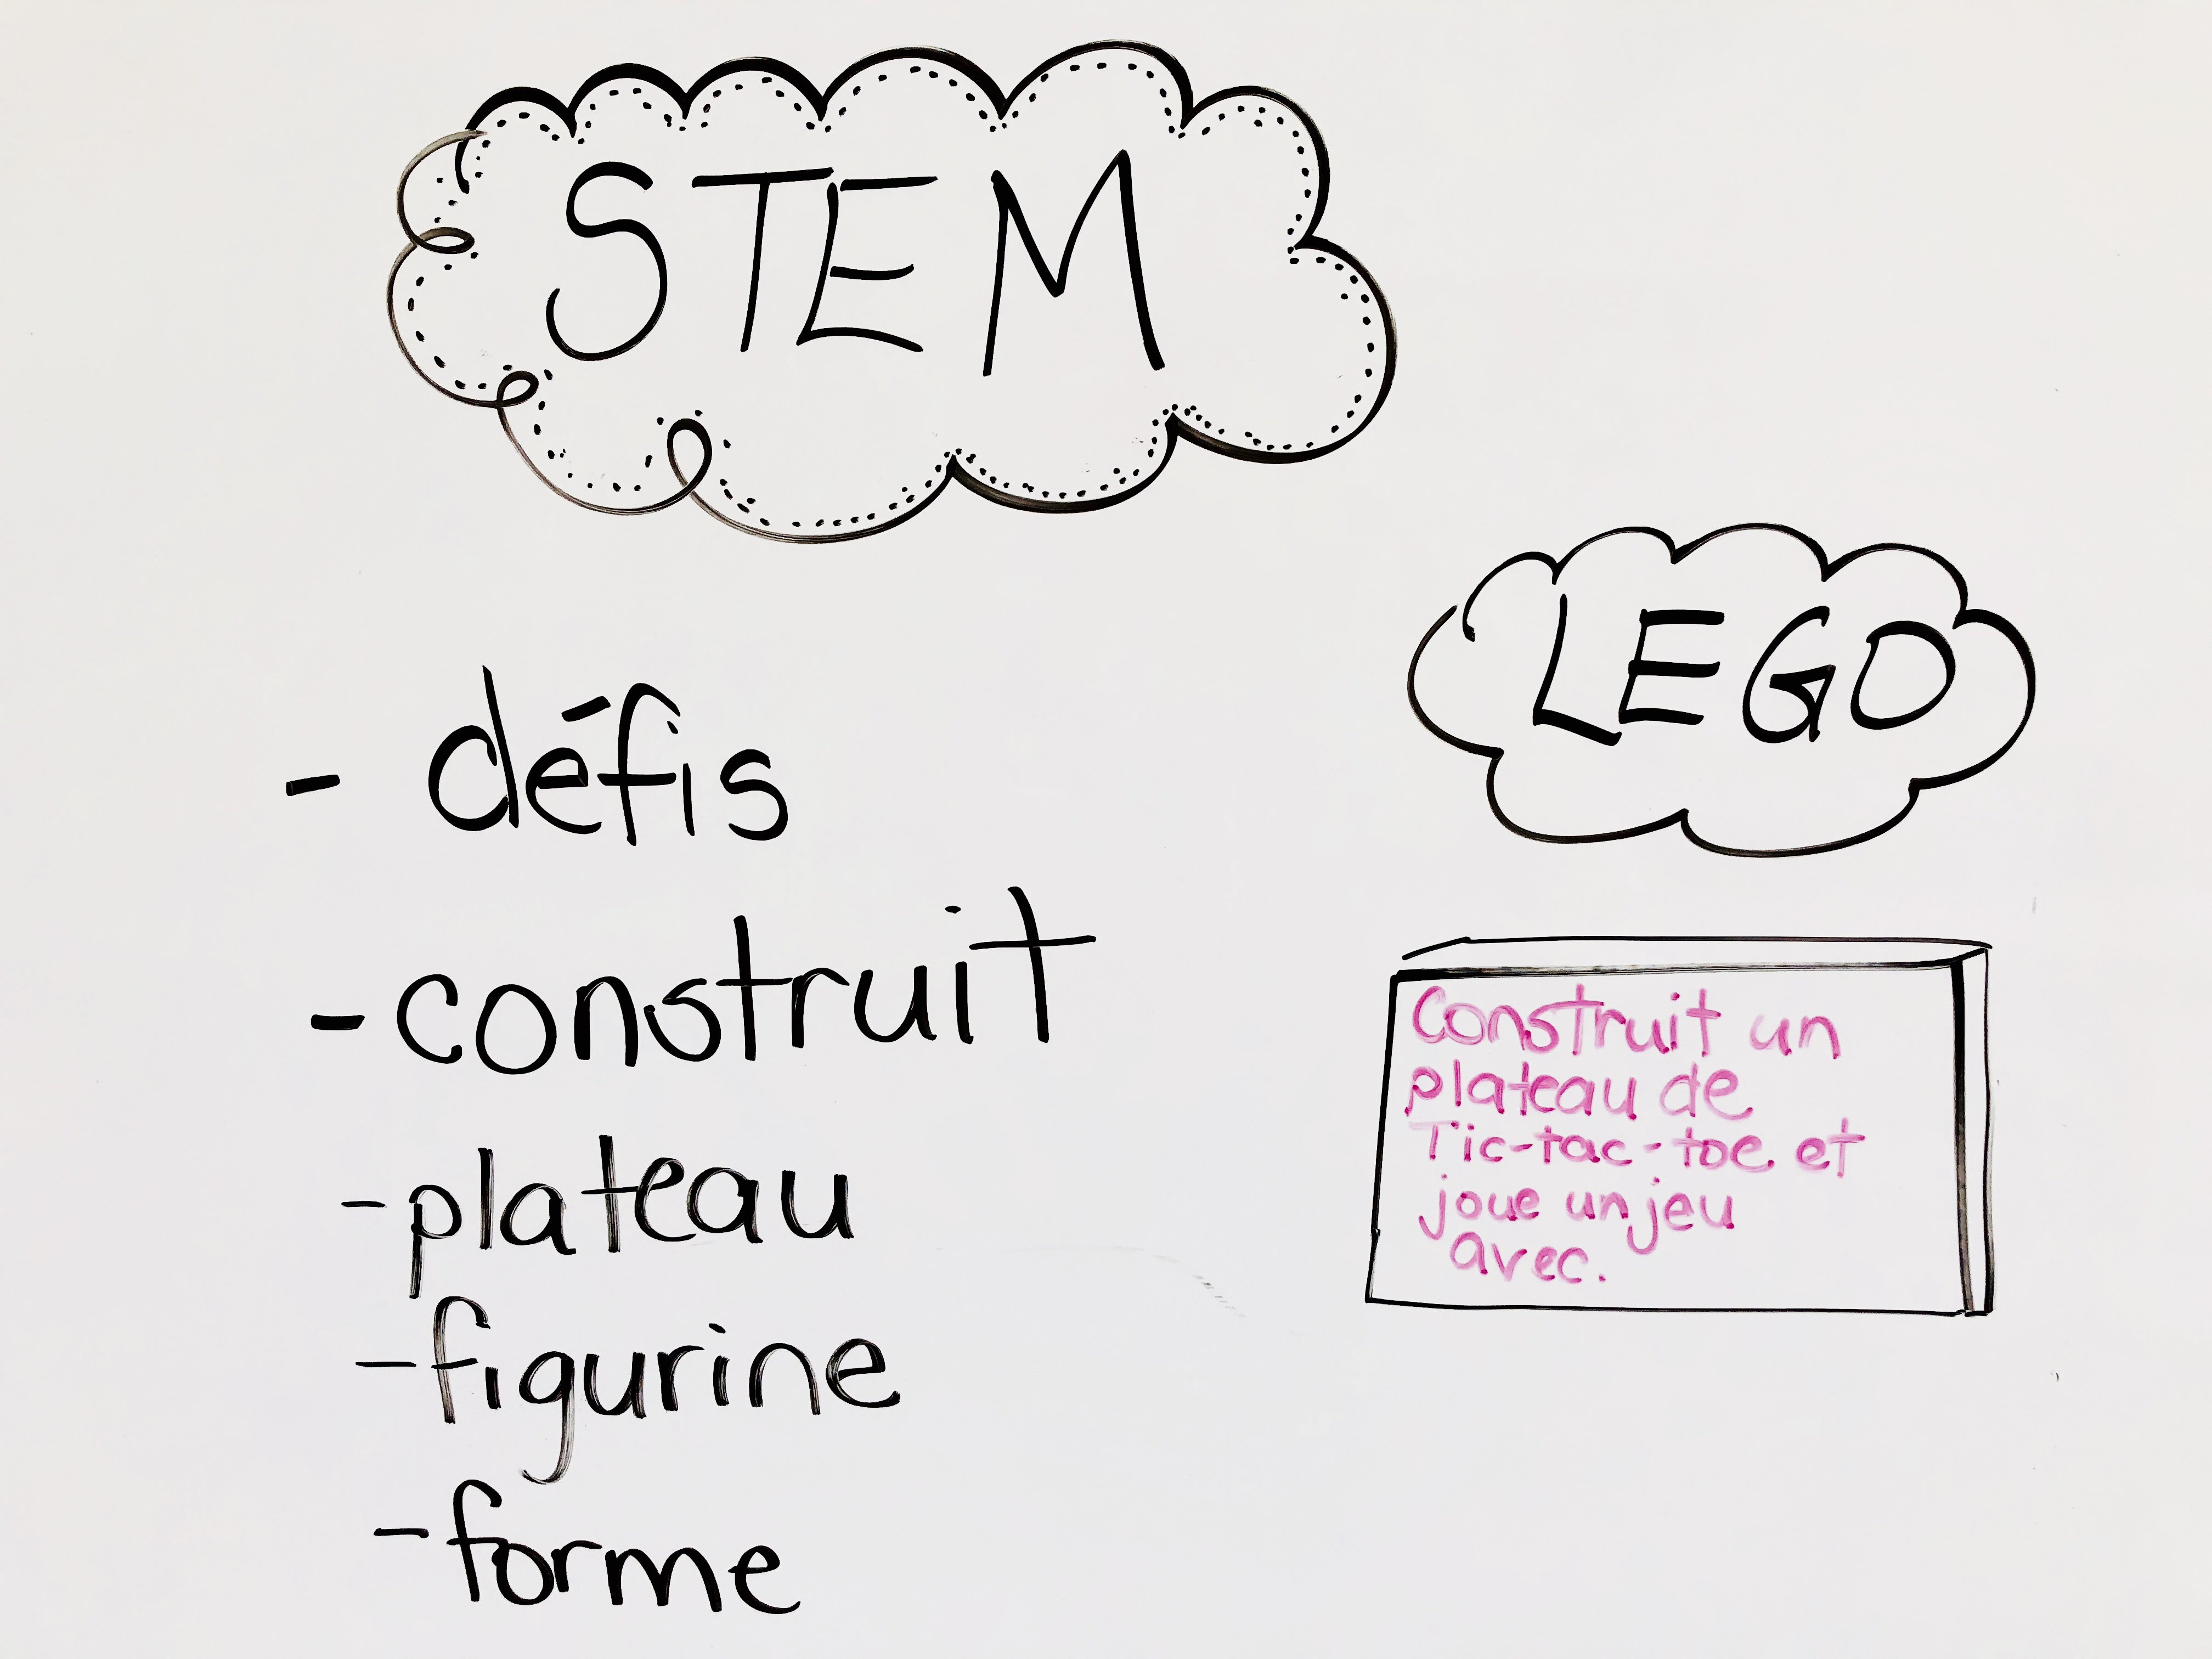 STEM
- défis
- construit
- plateau
- figurine
- forme
LEGO
Construit un
plateau de
Tic-tac-toe et
joue un jeu
avec.